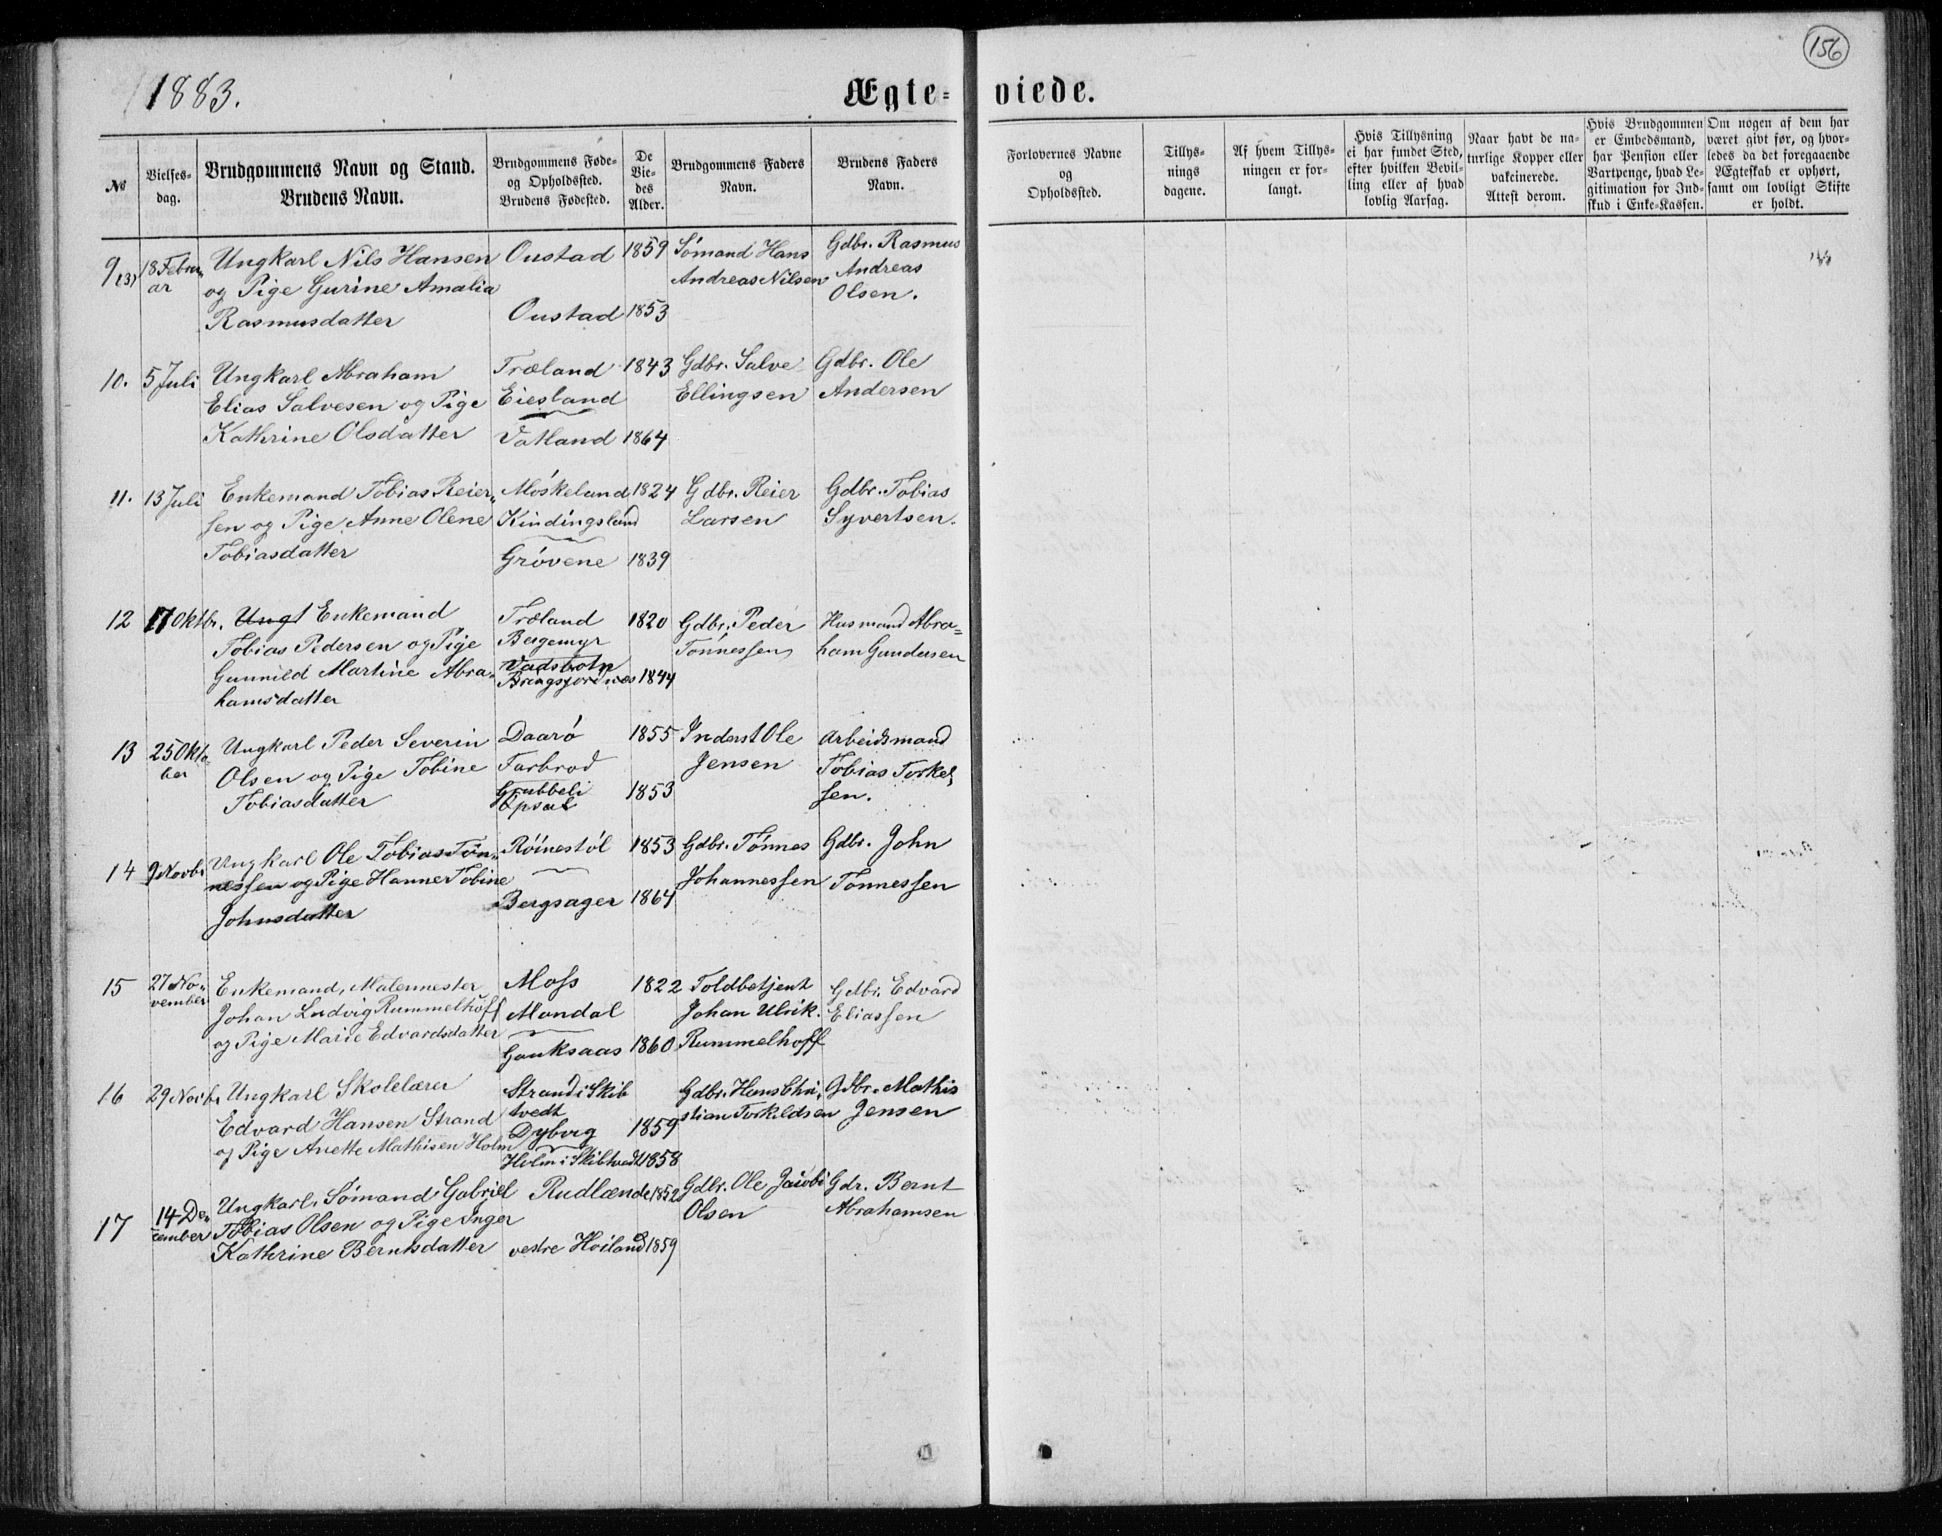 156
1883.
Ægte- viede.
№
Vielses-
dag.
Brudgommens Navn og Stand.
Brudens Navn.
Brudgommens Føde-
og Opholdssted.
Brudens Fødested.
De
Vie-
des
Alder.
Brudgommens Faders
Navn.
Brudens Faders
Navn.
Forlovernes Navne
og
Opholdssted.
Tillys-
nings
dagene.
Af hvem Tillys-
ningen er for-
langt.
Hvis Tillysning
ei har fundet Sted,
efter hvilken Bevil-
ling eller af hvad
lovlig Aarsag.
Naar havt de na-
turlige Kopper eller
vakcinerede.
Attest derom.
Hvis Brudgommen
er Embedsmand,
har Pension eller
Vartpenge, hvad Le-
gitimation for Ind-
skud i Enke-Kassen.
Om nogen af dem har
været givt før, og hvor-
ledes da det foregaaende
Ægteskab er ophørt,
samt om lovligt Skifte
er holdt.
9 (3) 18 Febru-
ar
Ungkarl Nils Hansen
og Pige Gurine Amalia
Rasmusdatter
Oustad 1859
Oustad 1853
Sömand Hans
Andreas Nilsen
Gdbr. Rasmus
Andreas
Olsen.
10. 5 Juli
Ungkarl Abraham
Elias Salvesen og Pige
Kathrine Olsdatter
Træland 1843
Eiesland
Vatland 1864
Gdbr. Salve
Ellingsen
Gdbr. Ole
Andersen
11. 13 Juli
Enkemand Tobias Reier-
sen og Pige Anne Olene
Tobiasdatter
Möskeland 1824
Kindingsland
Grövene 1839
Gdbr. Reier
Larsen
Gdbr. Tobias
Syvertsen.
12 17 Oktbr.
Ungt Enkemand
Tobias Pedersen og Pige
Gunnild Martine Abra-
hamsdatter
Træland 1820
Bergemyr
Vadsbotn
Bringsjordnes 1844
Gdbr. Peder
Tönnessen
Husmand Abra-
ham Gundersen
13 25 Okto-
ber
Ungkarl Peder Severin
Olsen og Pige Tobine
Tobiasdatter
Daarö 1855
Farbrod
Grubbeli
Opsal 1853
Inderst Ole
Jensen
Arbeidsmand
Tobias Torkel-
sen.
14 9 Novbr
Ungkarl Ole Tobias Tön-
nessen og Pige Hanne Tobine
Johnsdatter
Röinestöl 1853
Bergsager 1864
Gdbr. Tönnes
Johannessen
Gdbr. John
Tönnessen
15 27 No-
vember
Enkemand, Malermester
Johan Ludvig Rummelhoff
og Pige Marie Edvardsdatter
Moss 1822
Mandal
Gauksaas 1860
Toldbetjent
Johan Ulrik
Rummelhoff
Gdbr. Edvard
Eliassen
16 29 Novbr
Ungkarl Skolelærer
Edvard Hansen Strand
og Pige Anette Mathisen Holm
Strand i Skib
tvedt
Dyborg 1859
Holm i Skibtvedt 1858
Gdbr. Hans Chri-
stian Torkildsen
Gdbr. Mathis
Jensen
17 14 De-
cember
Ungkarl, Sömand Gabriel
Tobias Olsen og Pige Inger
Kathrine Berntsdatter
Rudlænde 1852
vestre Höiland 1859
Gdbr. Ole Jacob
Olsen
Gdr. Bernt
Abrahamsen